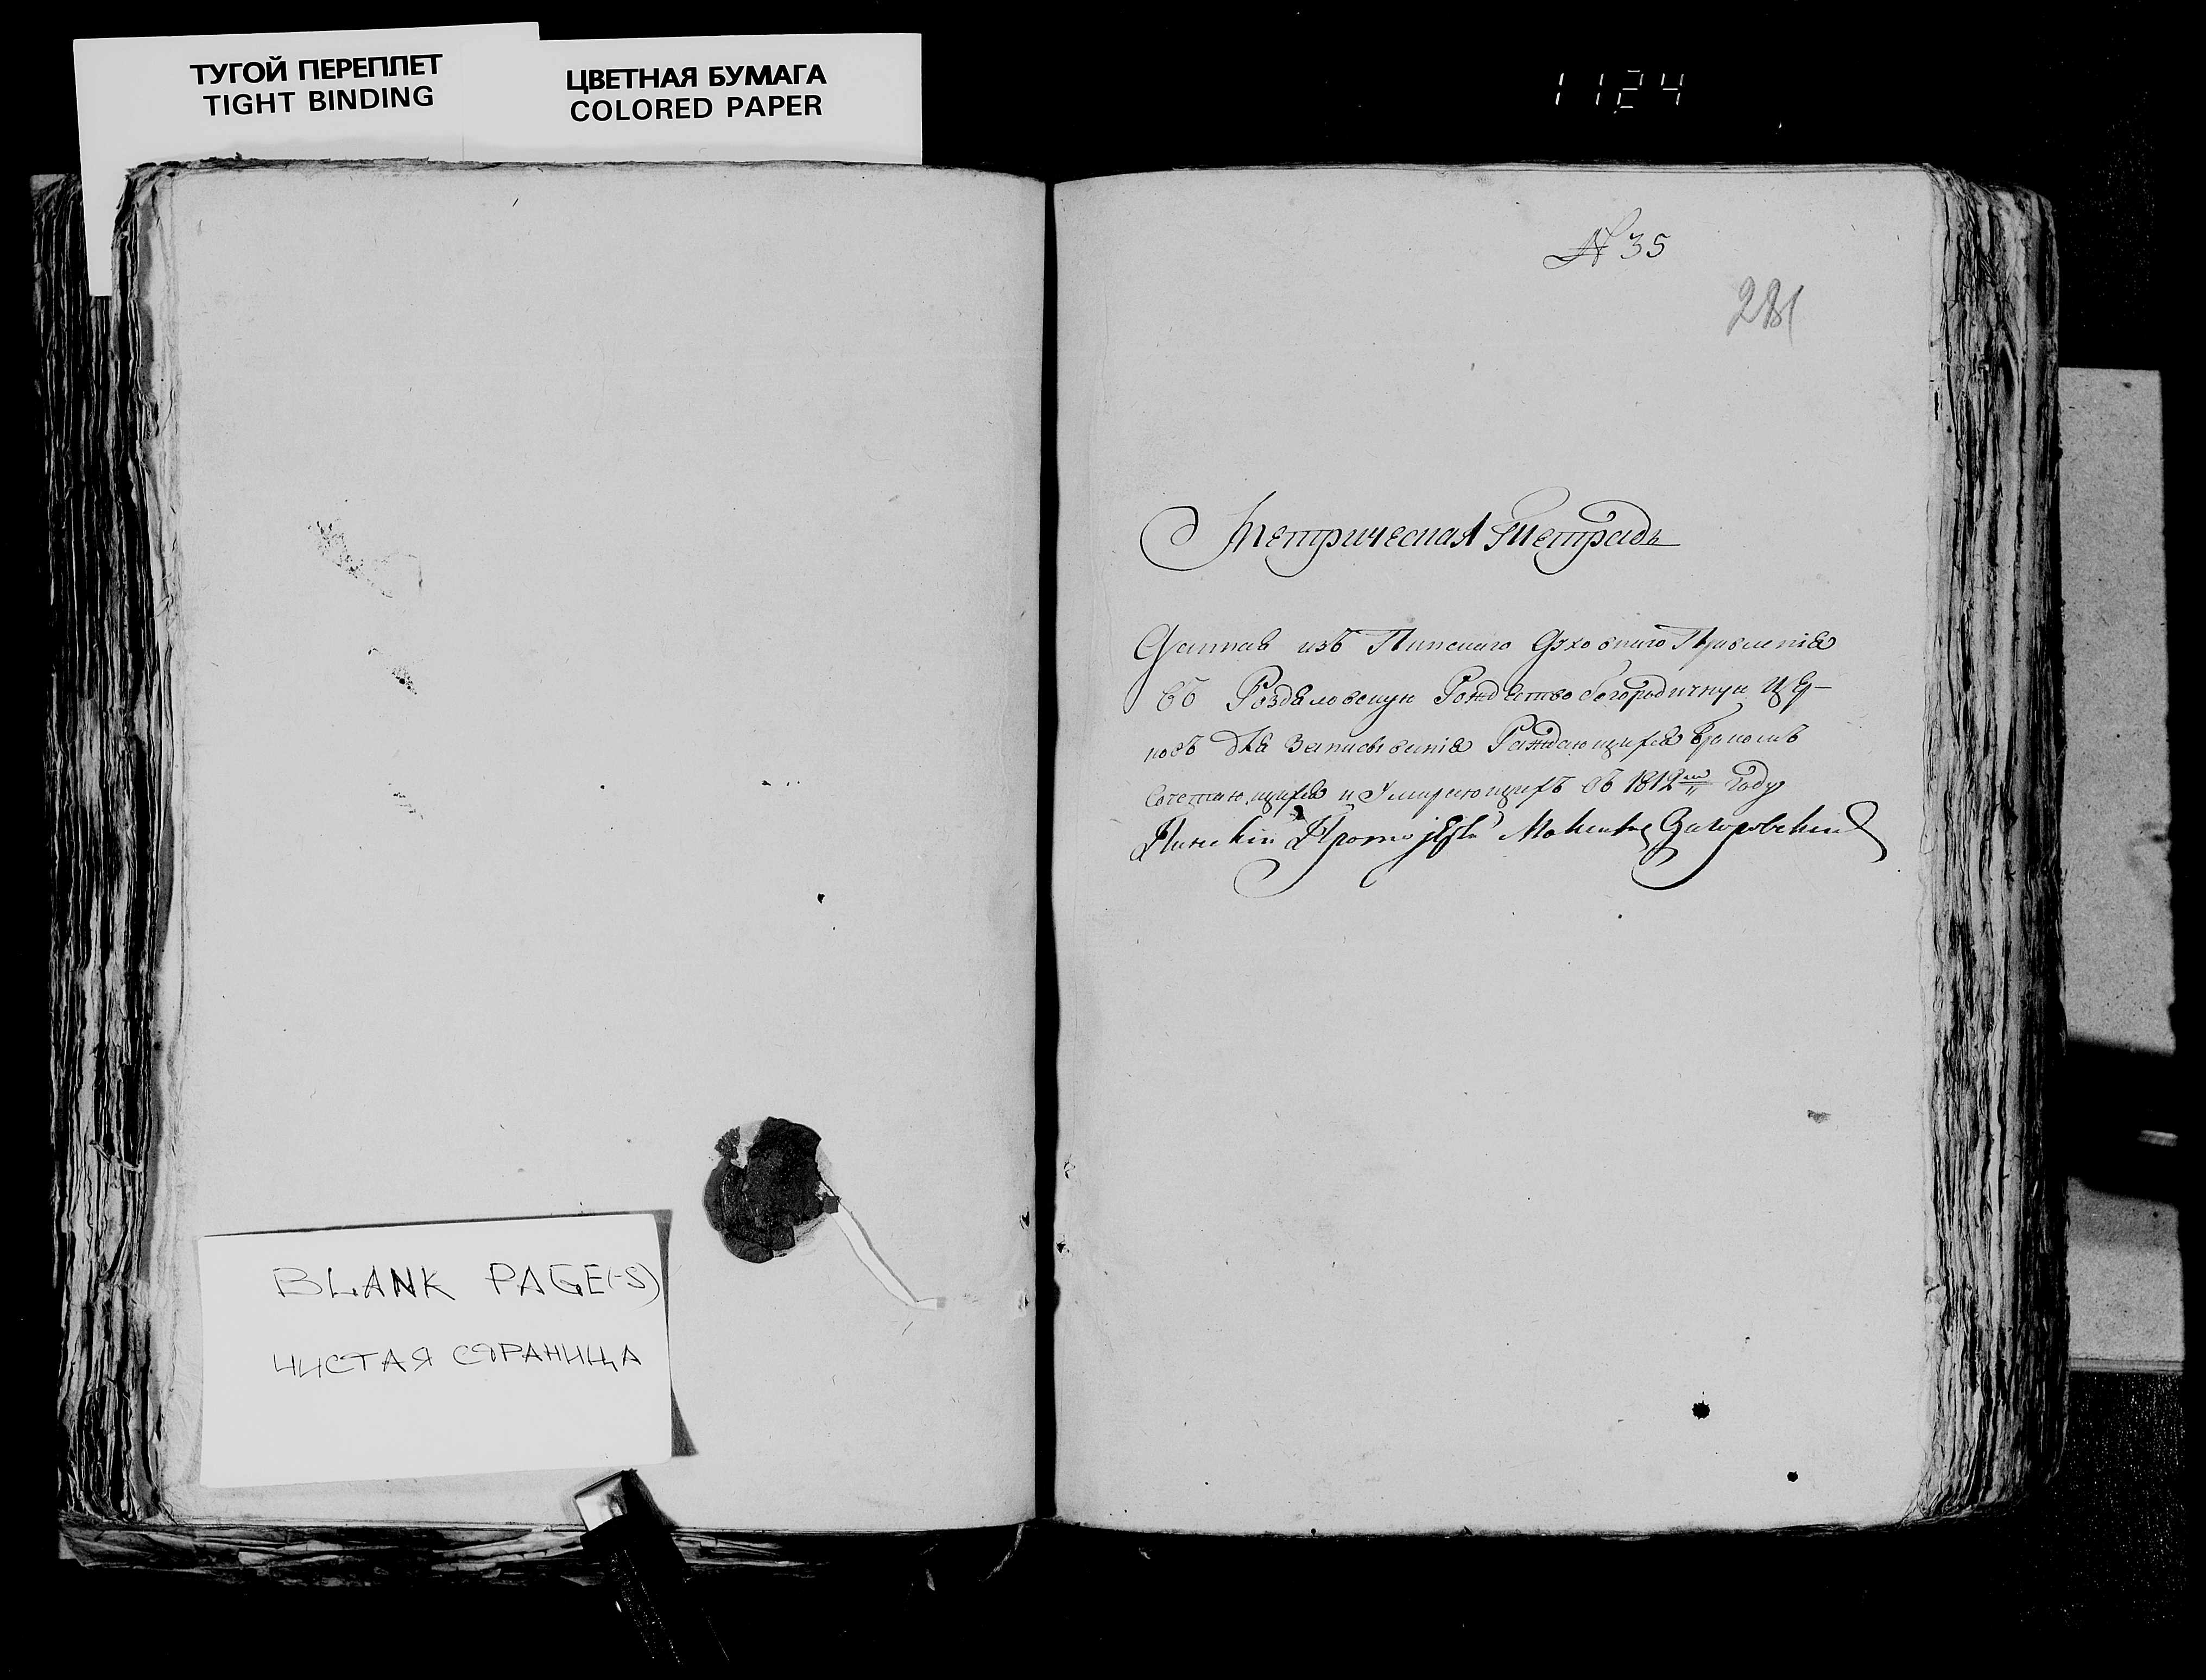 ТУГОЙ ПЕРЕПЛЕТ
TIGHT BINDING
ЦВЕТНАЯ БУМАГА
COLORED PAPER
1124
№ 35
281
Метрическая тетрадь
Данная изъ Пинскаго Духовнаго Правленія
въ Роздѣловскую Рождество богородичную Цер-
ковь для записыванія Раждающихся бракомъ
сочетающихся и Умирающихъ въ 1812 году
Пинскій Протоіерей
BLANK PAGE(-S)
ЧИСТАЯ СТРАНИЦА